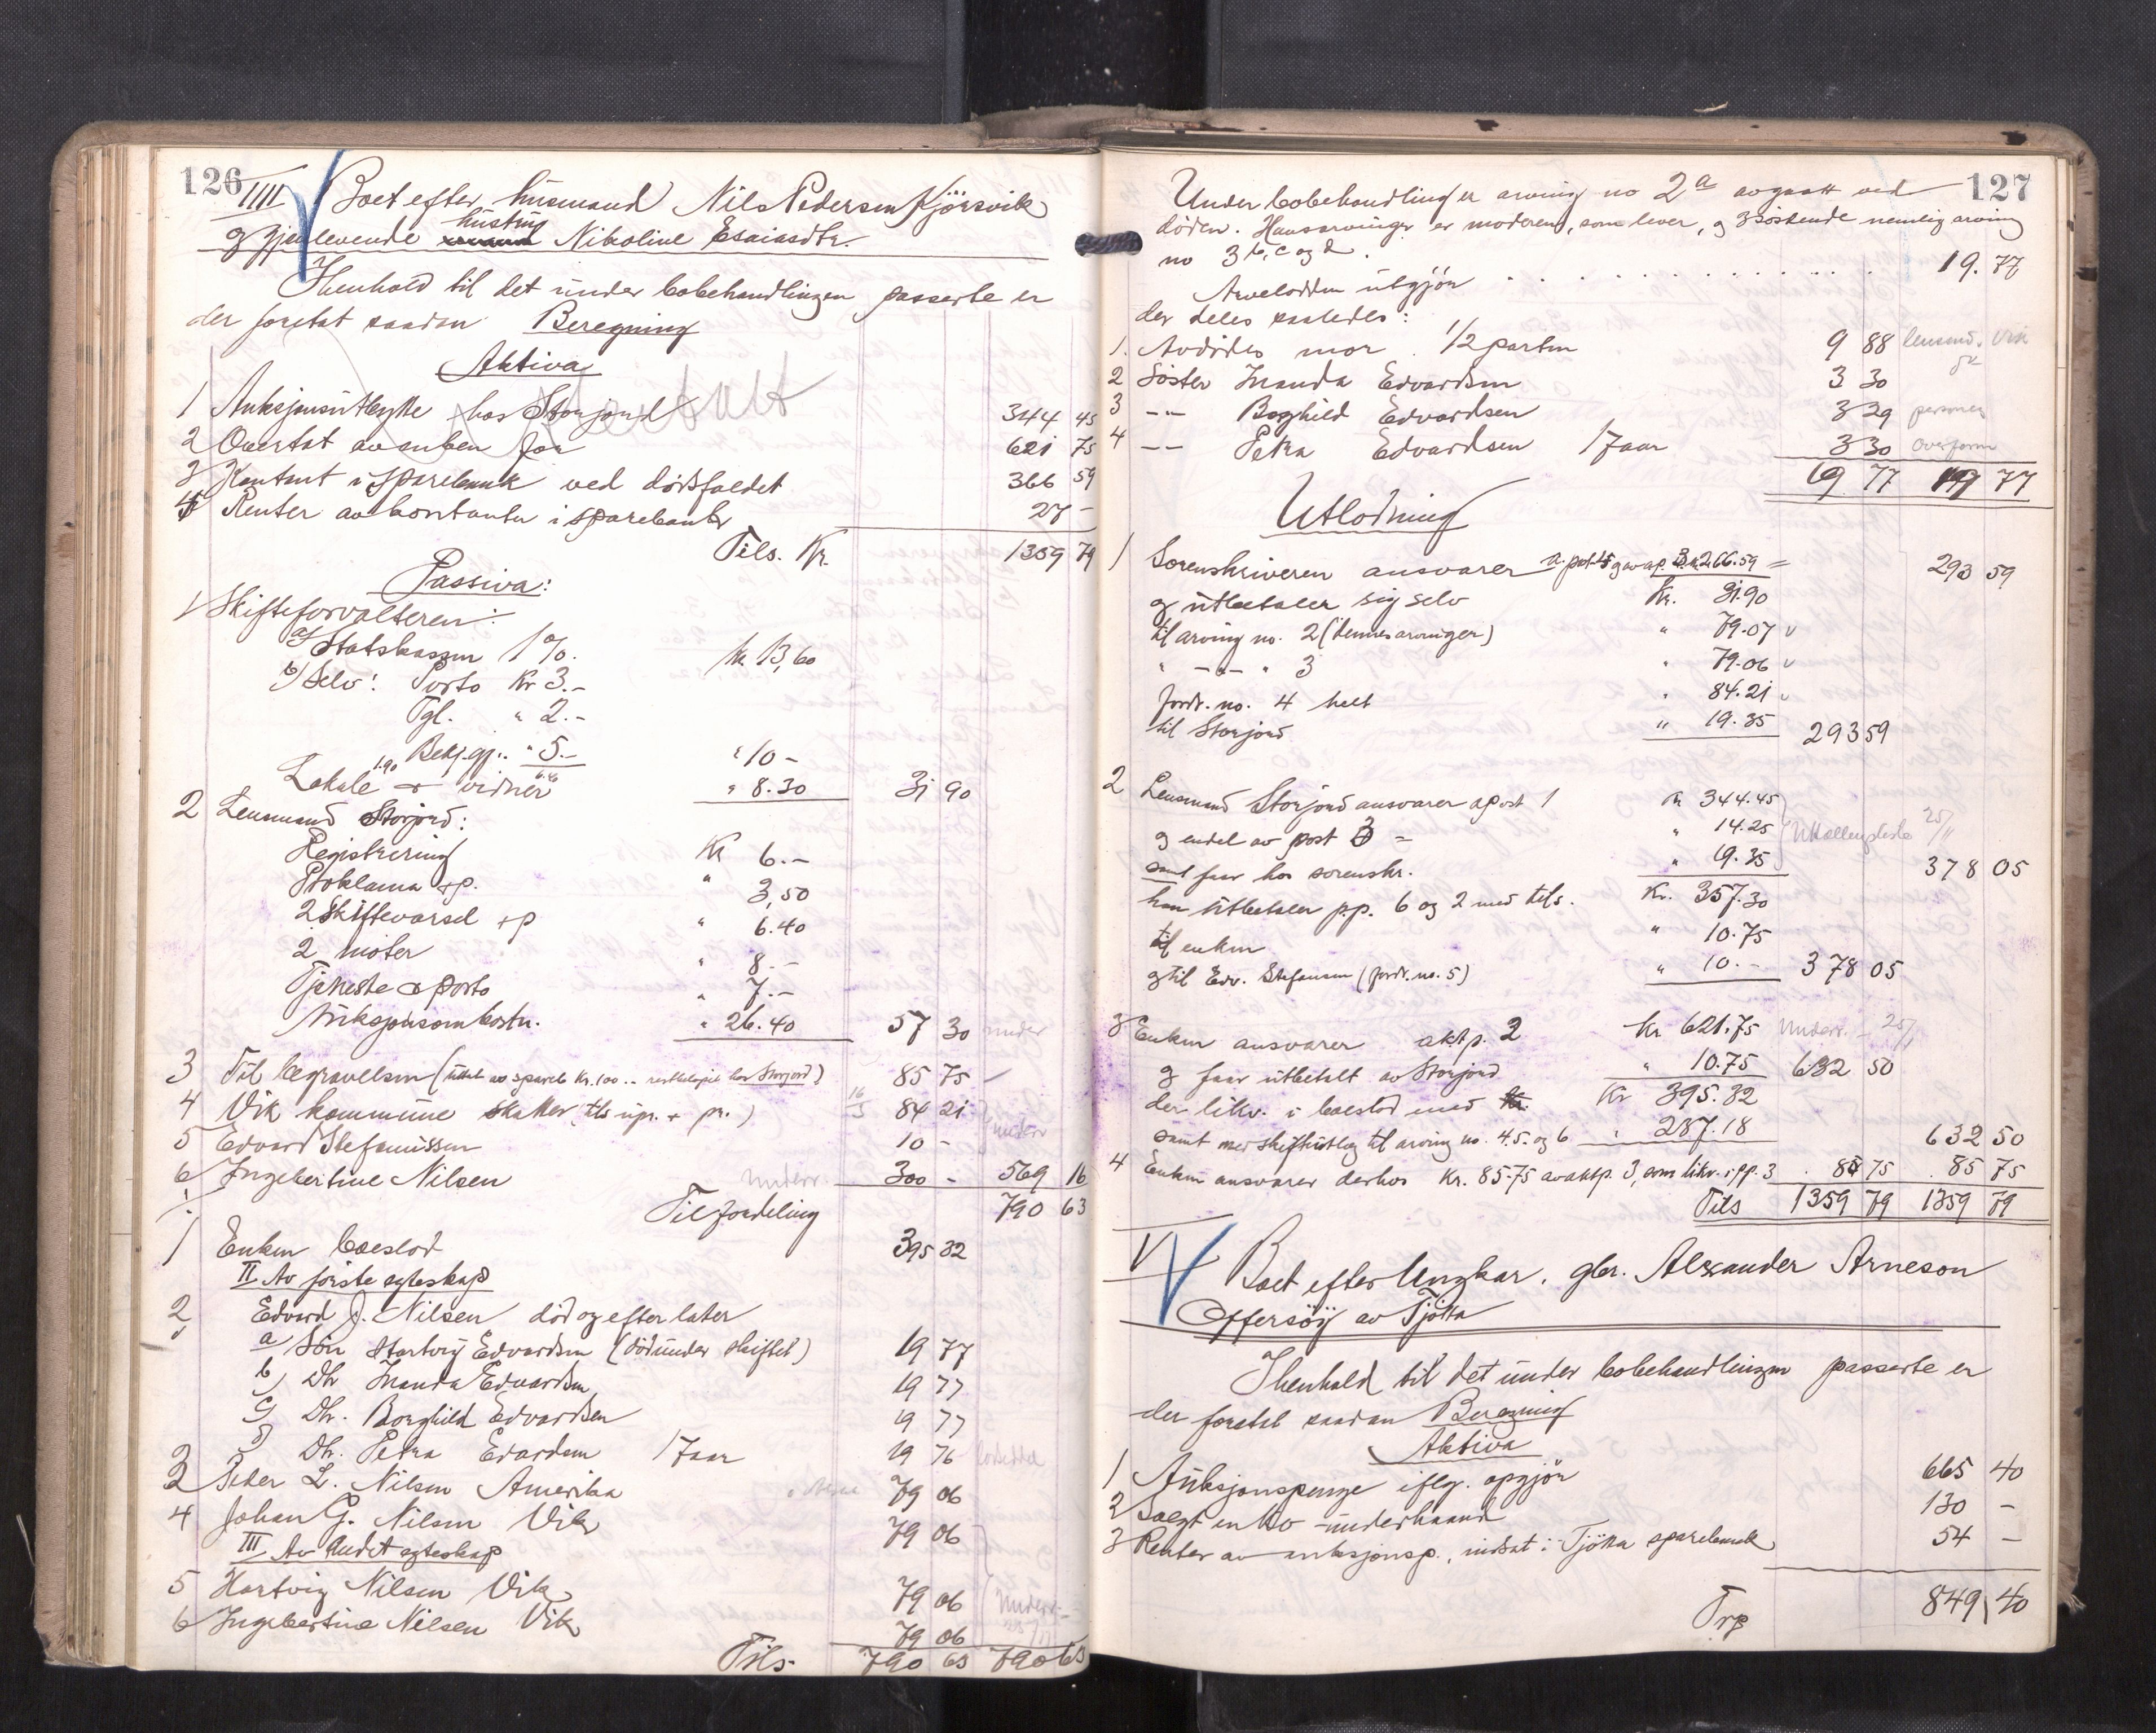 126
IIII Boet efter husmand Nils Pedersen Kjörsvik
og gjenlevende hustru Nikoline Esaiasdtr.
Ihenhold til det under bobehandlingen passerte er
der foretat saadan Beregning
Aktiva
1 Auksjonsutbytte hos Storjord 344 45
2 Overtat av enken for 621 75
3 Kontant i sparebank ved dödsfaldet 366 59
4 Renter av kontanter i sparebank 27 -
Tils. Kr. 1359 79
Passiva:
1 Skifteforvalteren:
a) Statskassen 1%. kr 13,60
b) Selv: Porto Kr 3.-
Tgl. " 2.-
Bekj.gj. " 5.- " 10 -
Lokale 1.90 + vidner 6.40 " 8.30 31 90
2 Lensmand Storjord:
Registrering Kr 6.-
Proklama + p. " 3,50
2 Skiftevarsel + p " 6.40
2 möter " 8.-
Tjeneste & porto " 7.-
Auksjonsomkostn. " 26.40 57 30
3 Til begravelsen (uttat av spareb kr. 100.- restbelöpet hos Storjord) 85 75
4 Vik kommune skatter 84 21
5 Edvard Stefanussen 10 -
6 Ingebertine Nilsen 300 - 569 16
Til fordeling 790 63
1 Enken boeslod 395 32
II Av förste egteskap
2 Edvard J. Nilsen död og efterlater
a Sön Hartvig Edvardsen (död under skiftet) 19 77
b) Dtr Inanda Edvardsen 19 77
c) Dtr. Borghild Edvardsen 19 77
d) Dtr. Petra Edvardsen 17 aar 19 76
3 Peter L. Nilsen Amerika 79 06
4 Johan G. Nilsen Vik 79 06
III Av Andet egteskap
5 Hartvig Nilsen Vik 79 06
6 Ingebertine Nilsen Vik 79 06
Tils. 790 63 790 63
127
Under bobehandlingen er arving no 2 a avgaatt ved
döden. Hans arvinger er moderen, som lever, og 3 söskende nemlig arving
no 3 b, c og d.
Arvelodden utgjör 19.77
der deles saaledes:
1. Avdödes mor 1/2 parten 9 88
2 Söster Inanda Edvardsen 3 30
3 -"- Borghild Edvardsen 3 29
4 -"- Petra Edvardsen 17 aar 3 30
19 77 19 77
Utlodning
1 Sorenskriveren ansvarer a. post 4 og av a.p. 3 kr 266.59 = 293 59
og utbetaler sig selv Kr. 31.90
til arving no. 2 (dennes arvinger) " 79.07
" -"- " 3 " 79.06
fordr. no. 4 helt " 84.21
til Storjord " 19.35 293 59
2 Lensmand Storjord ansvarer a post 1 kr 344.45
og endel av post 3 = " 14.25
samt faar hos sorenskr. " 19.35 378 05
han utbetaler p.p. 6 og 2 med tils. Kr. 357.30
til enken " 10.75
og til Edv. Stefansen (fordr. no. 5) " 10.- 378 05
3 Enken ansvarer aktp. 2 kr 621.75
og faar utbetalt av Storjord " 10.75 632 50
der likv. i boeslod med Kr 395.32
samt med skifteutlæg til arving no. 4. 5. og 6 " 287.18 632 50
4 Enken ansvarer derhos Kr. 85.75 av aktp. 3, som likv. i pp. 3 85 75 85 75
Tils 1359 79 1359 79
V Boet efter Ungkar, gbr. Alexander Arneson
Offersöy av Tjötta
Ihenhold til det under bobehandlingen passerte er
der foretat saadan Beregning
Aktiva
1 Auksjonspenge iflg. opgjör 665 40
2 Solgt en ko underhaand 130 -
3 Renter av auksjonsp., indsat i Tjötta sparebank 54 -
Trp 849 40